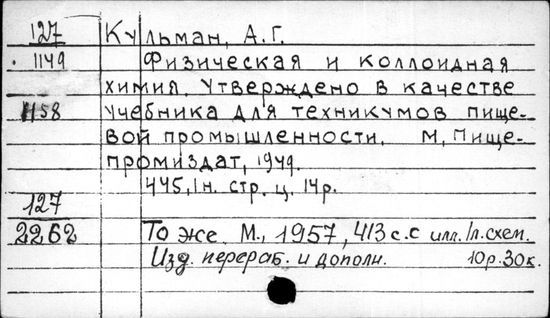 127 Кульман, А.Г.
1149 Физическая и коллоидная
химия. Утверждено в качестве
1158 учебника для техникумов пище-
вой промышленности. М, Пище-
промиздат, 1949.
445, 1н. стр. ц. 14р.
127
2262 То же. М., 1957, 413 с. с илл. 1л. схем.
Изд. перераб. и дополн. 10р. 30к.